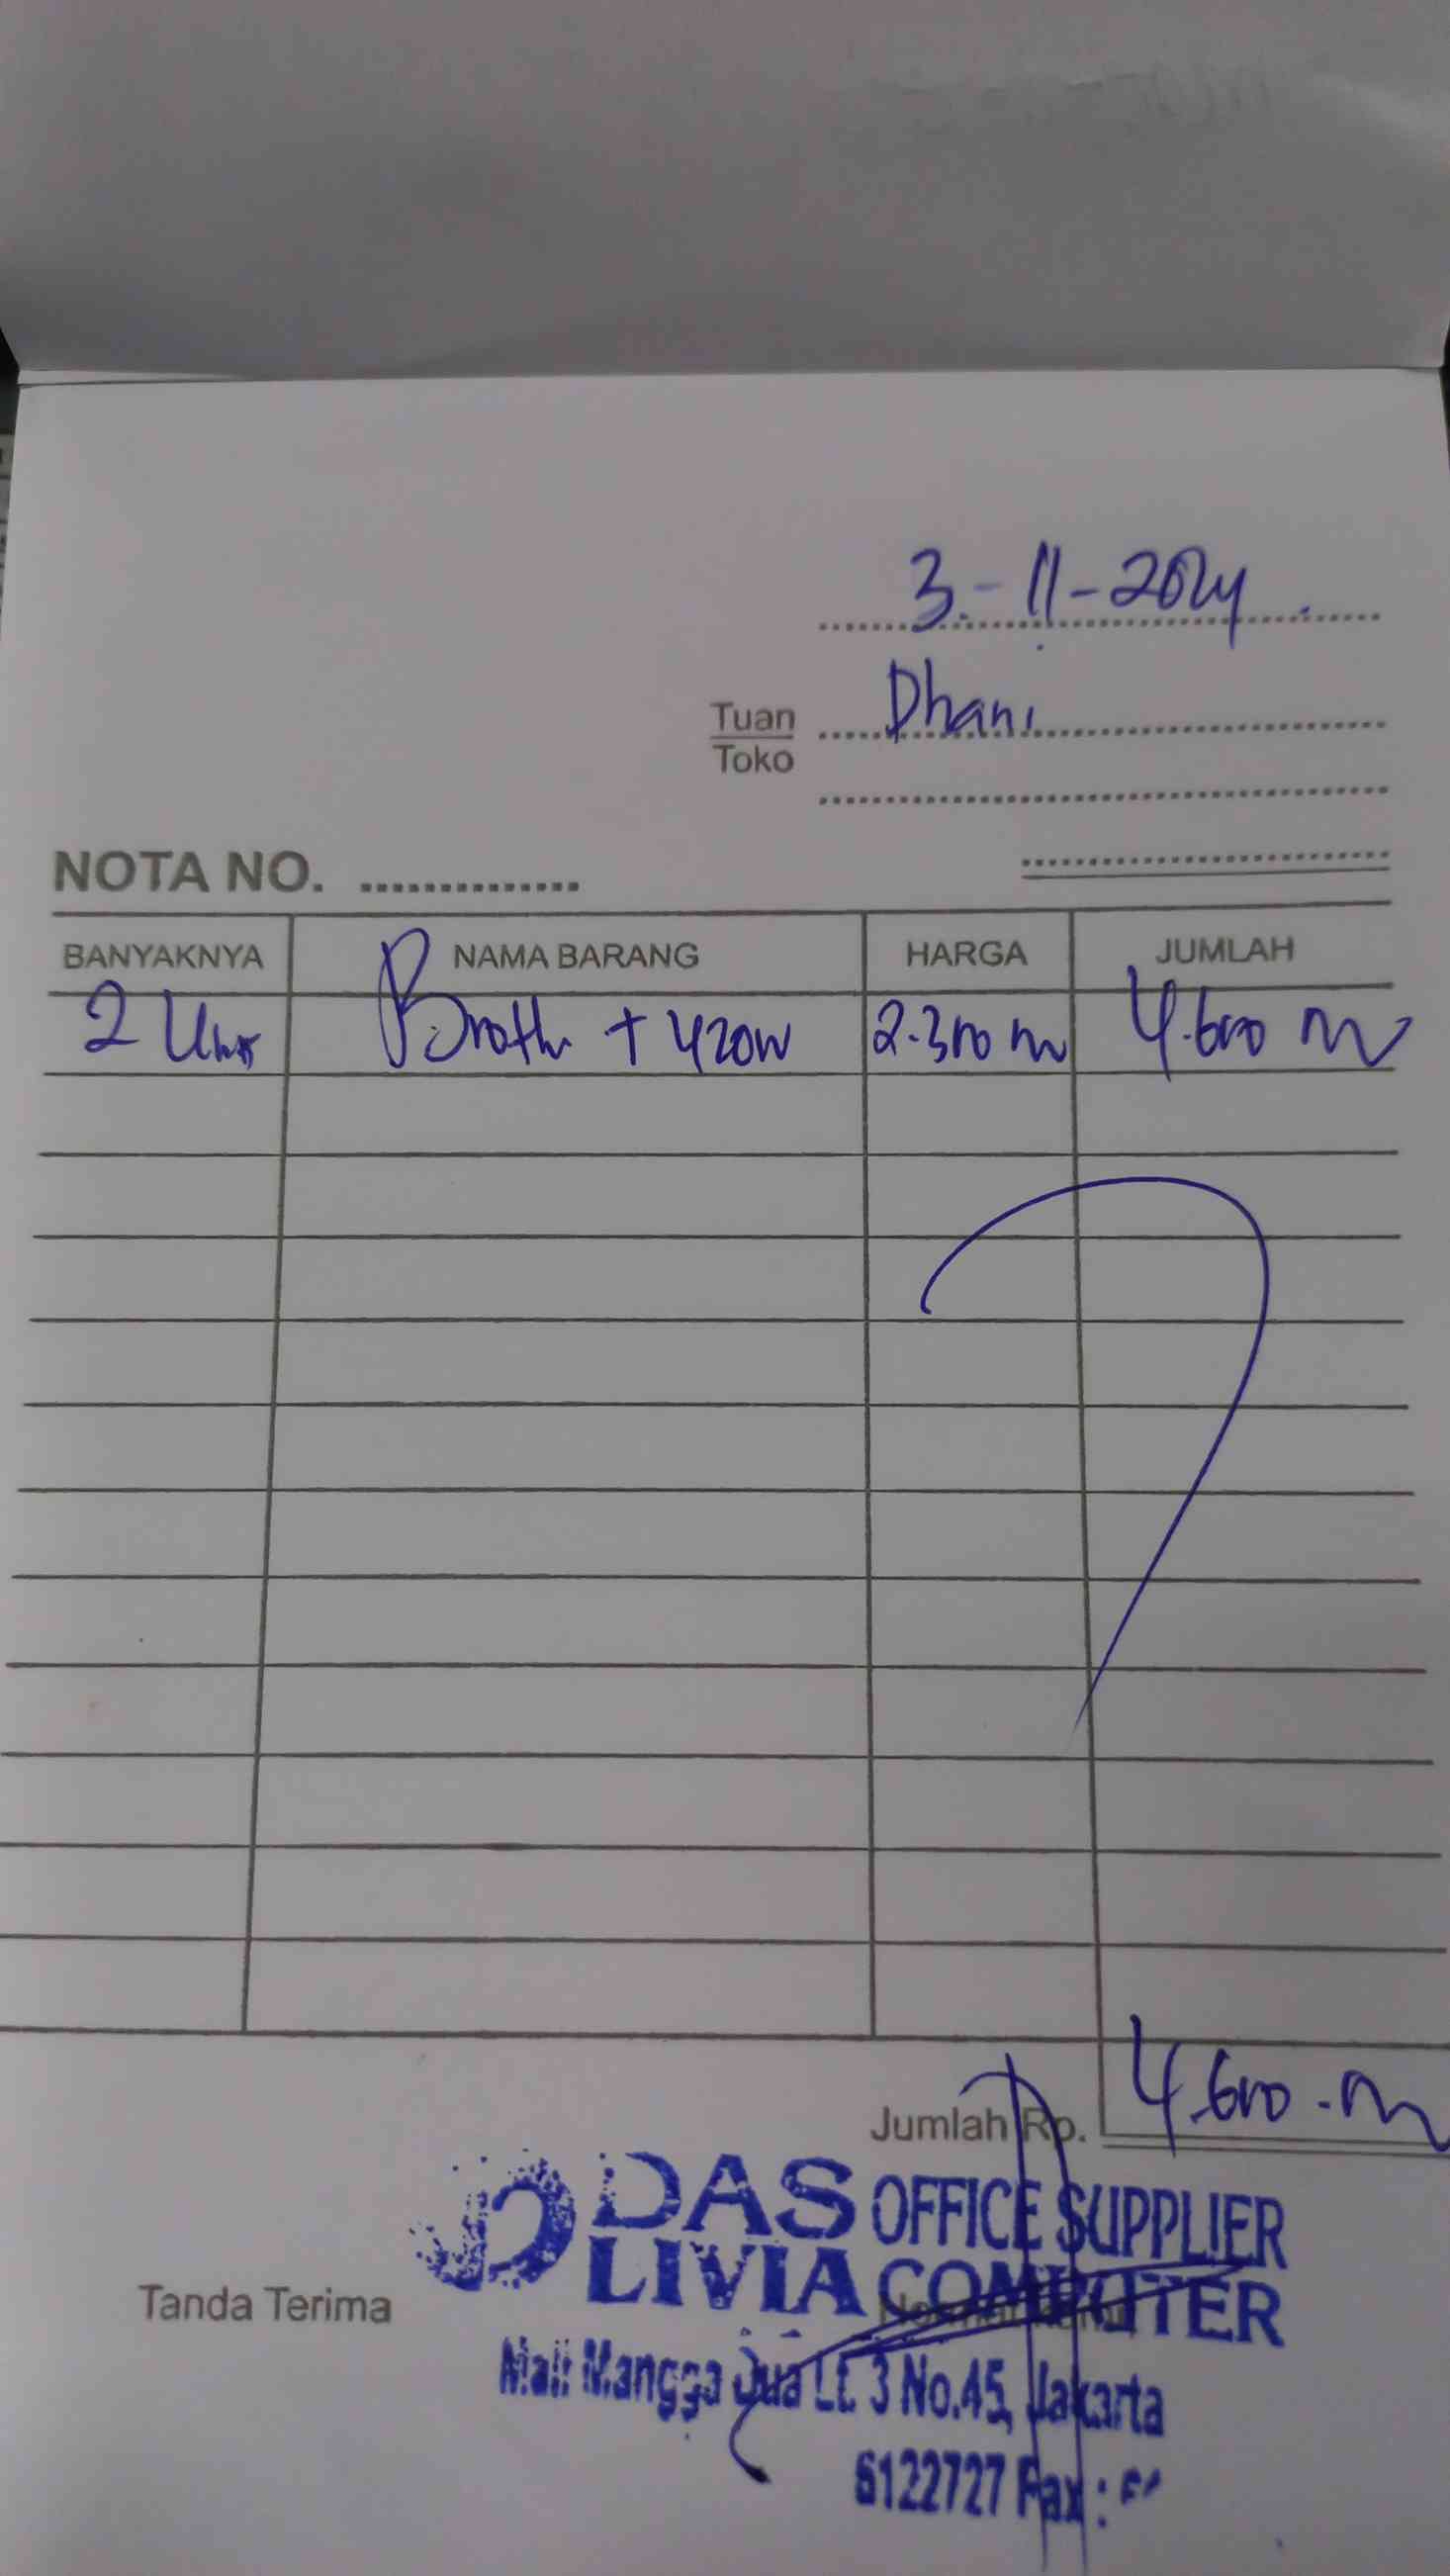 3-11-2024
Tuan Dhani
Toko
NOTA NO. ..............
BANYAKNYA NAMA BARANG HARGA JUMLAH
2 Unit Broth + 420W 2.300 4.600
Jumlah Rp. 4.600
DAS OFFICE SUPPLIER
LIVIA COMPUTER
Tanda Terima
Mall Mangga Dua Lt. 3 No.45, Jakarta
6122727 Fax :